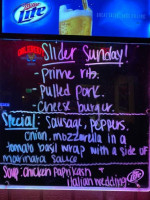 Miller
Lite
Slider Sunday!
- Prime rib.
- Pulled Pork.
- Cheese burger.
Special: Sausage, peppers,
onion, mozzarella in a
tomato basil wrap with a side of
marinara sauce
Soup: Chicken Paprikash
italian wedding